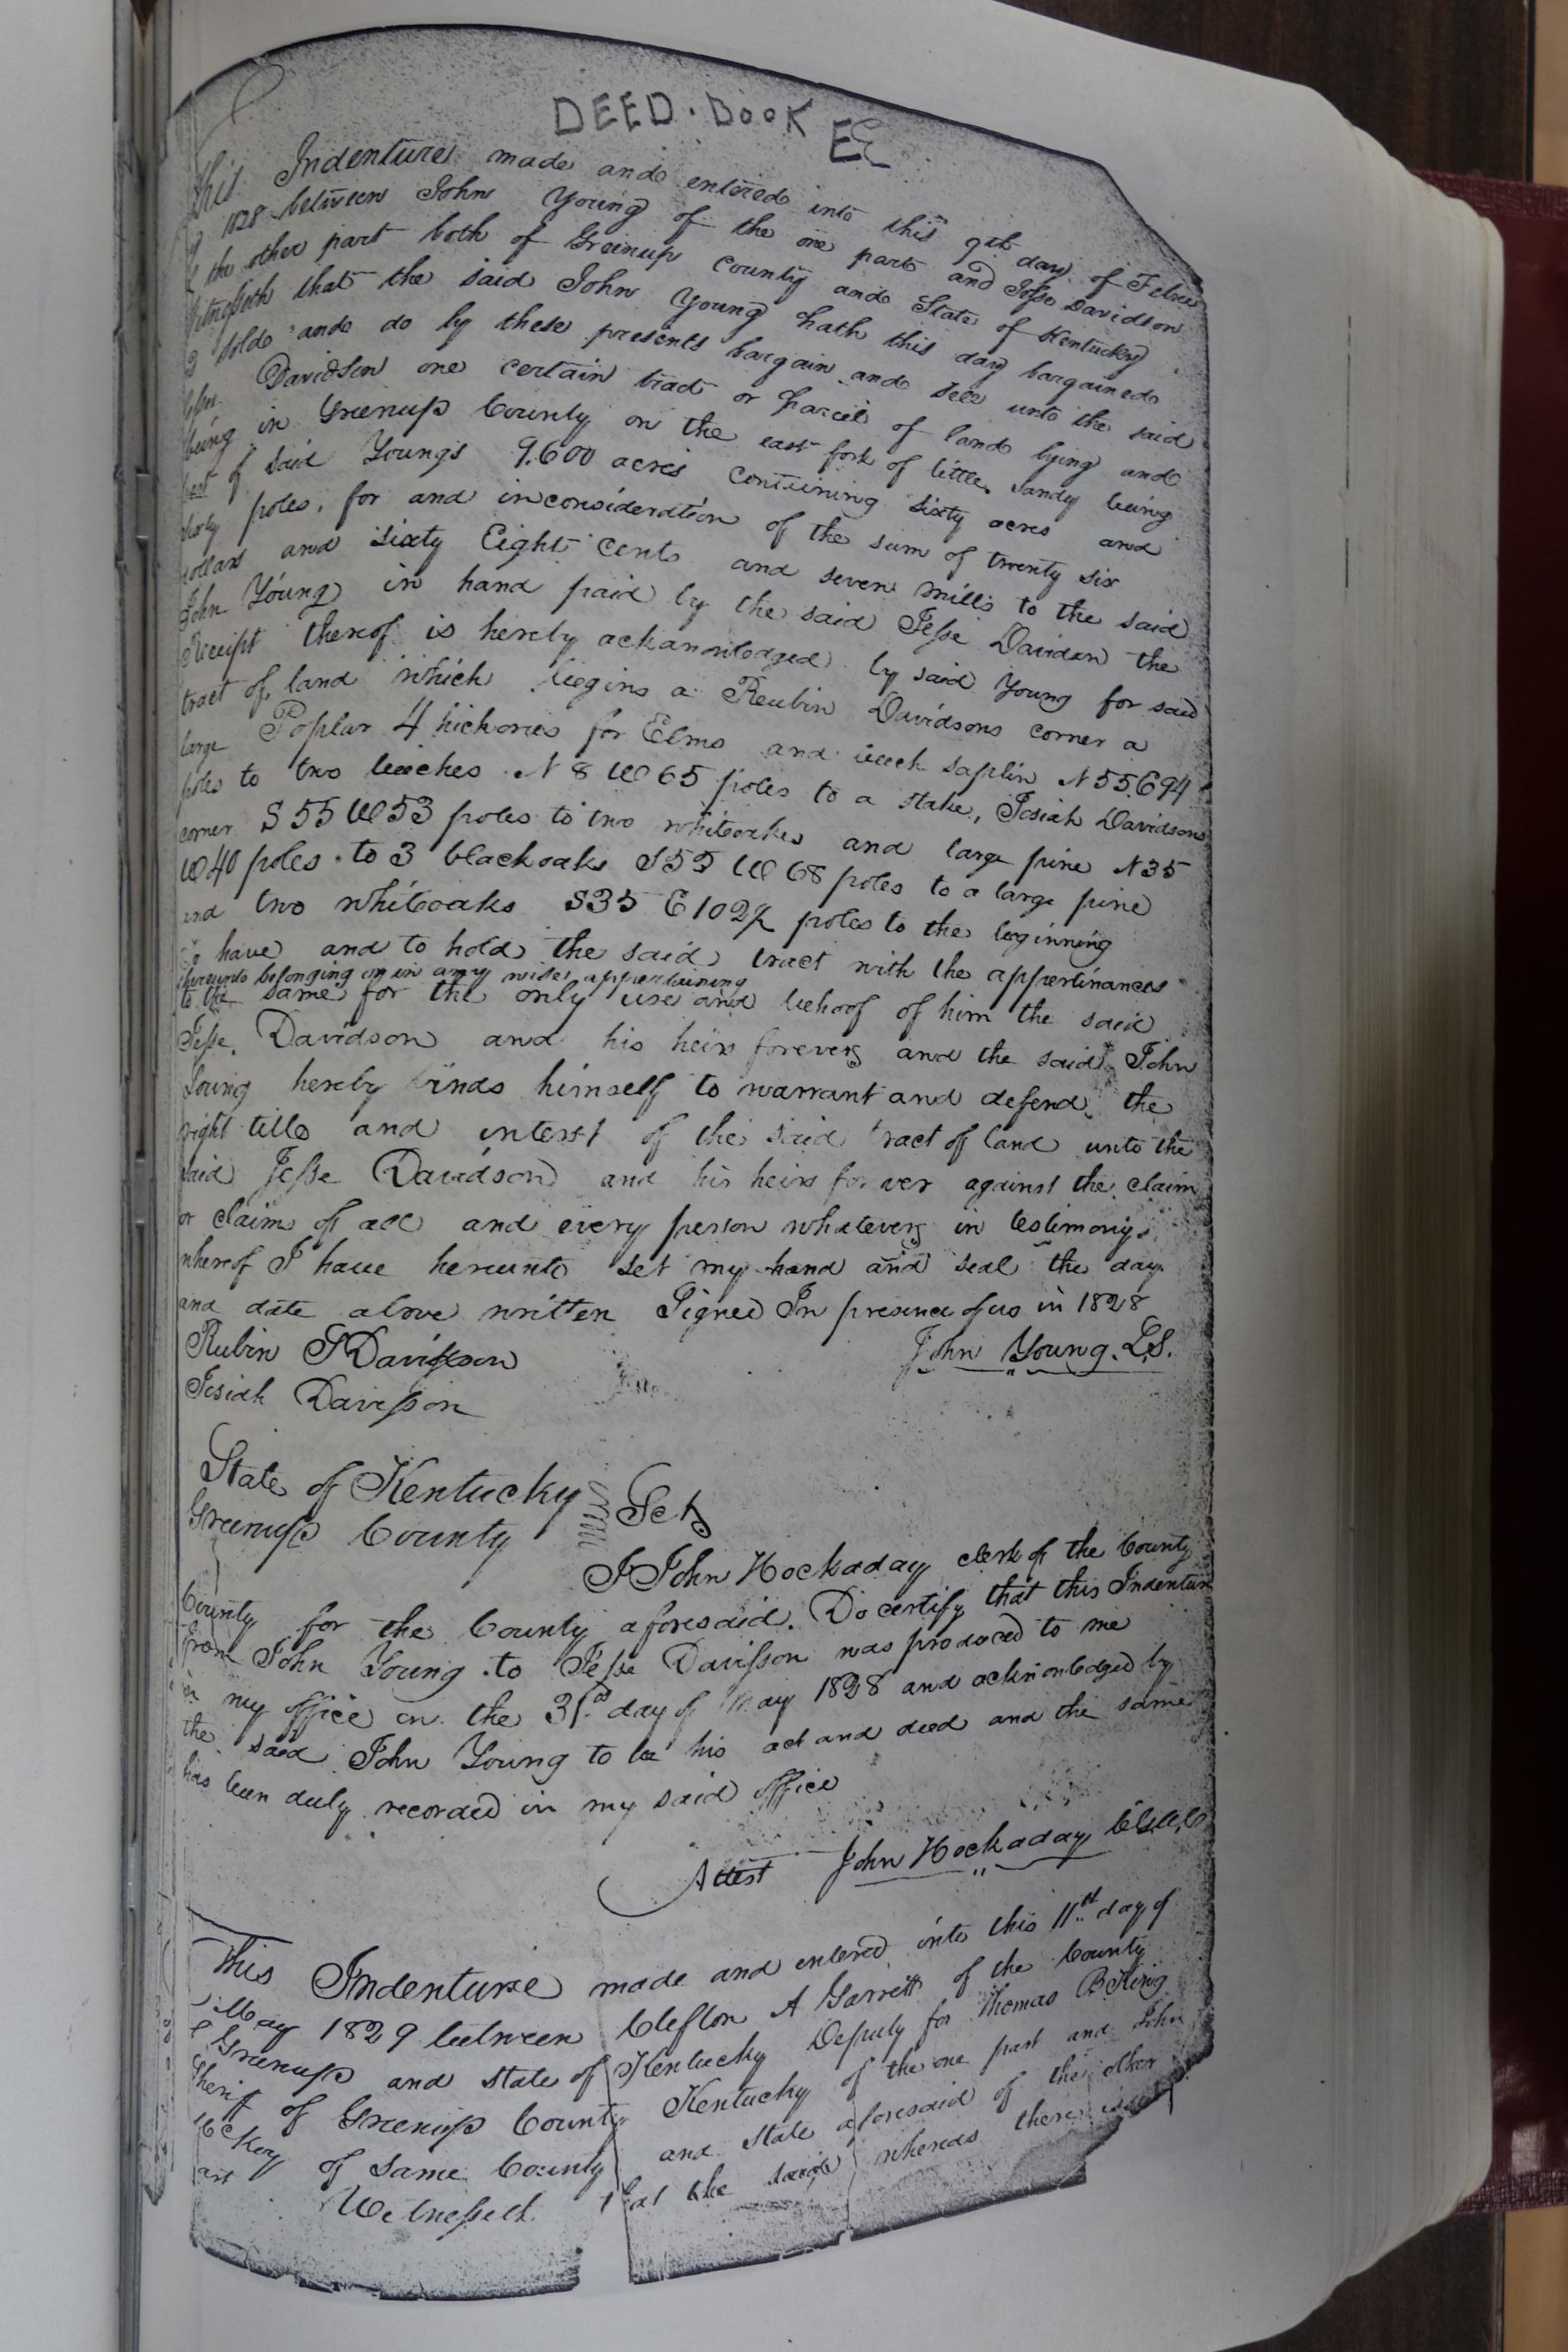 DEED. BooK EE
This Indenture made and entered into this 9th day of Febru
1828 between John Young of the one part and Jesse Davidson
the other part both of Greenup County and State of Kentucky
Witnesseth that the said John Young hath this day bargained
& sold and do by these presents bargain and sell unto the said
Jesse Davidson one certain tract or parcel of land lying and
being in Greenup County on the east fork of little Sandy being
part of said Youngs 9.600 acres containing sixty acres and
sixty poles, for and inconsideration of the sum of twenty six
dollars and sixty Eight cents and seven mills to the said
John Young in hand paid by the said Jesse Davidson the
Receipt thereof is hereby acknowledged by said Young for said
tract of land which begins a Reubin Davidsons corner a
large Poplar 4 hickories for Elms and beech saplin N 55 E 94
poles to two beeches N 8 W 65 poles to a stake, Josiah Davidsons
corner S 55 W 53 poles to two whiteoakes and large pine N 35
W 40 poles to 3 blackoaks S 55 W 68 poles to a large pine
and two whiteoaks S 35 E 102 poles to the beginning
to have and to hold the said tract with the appertinances
thereunto belonging or in any wise appertaining
to the same for the only use and behoof of him the said
Jesse Davidson and his heirs forever and the said John
Young hereby binds himself to warrant and defend the
right title and interst of the said tract of land unto the
said Jesse Davidson and his heirs forever against the claim
or claim of all and every person whatever in testimony
whereof I have hereunto set my hand and seal the day
and date above written Signed In presence of us in 1828
Rubin Davisson John Young. L.S.
Josiah Davisson
State of Kentucky
Greenup County Sct
I John Hockaday clerk of the County
County for the County aforesaid. Do certify that this Indenture
from John Young to Jesse Davisson was produced to me
in my office on the 31st day of May 1828 and acknowledged by
the said John Young to be his act and deed and the same
has been duly recorded in my said office
Attest John Hockaday
This Indenture made and entered into this 11th day of
May 1829 between Clefton A Garrett of the County
of Greenup and state of Kentucky Deputy for Thomas B King
Sheriff of Greenup County Kentucky of the one part and John
of same County and state aforesaid of the other
part Witnesseth that the said whereas there